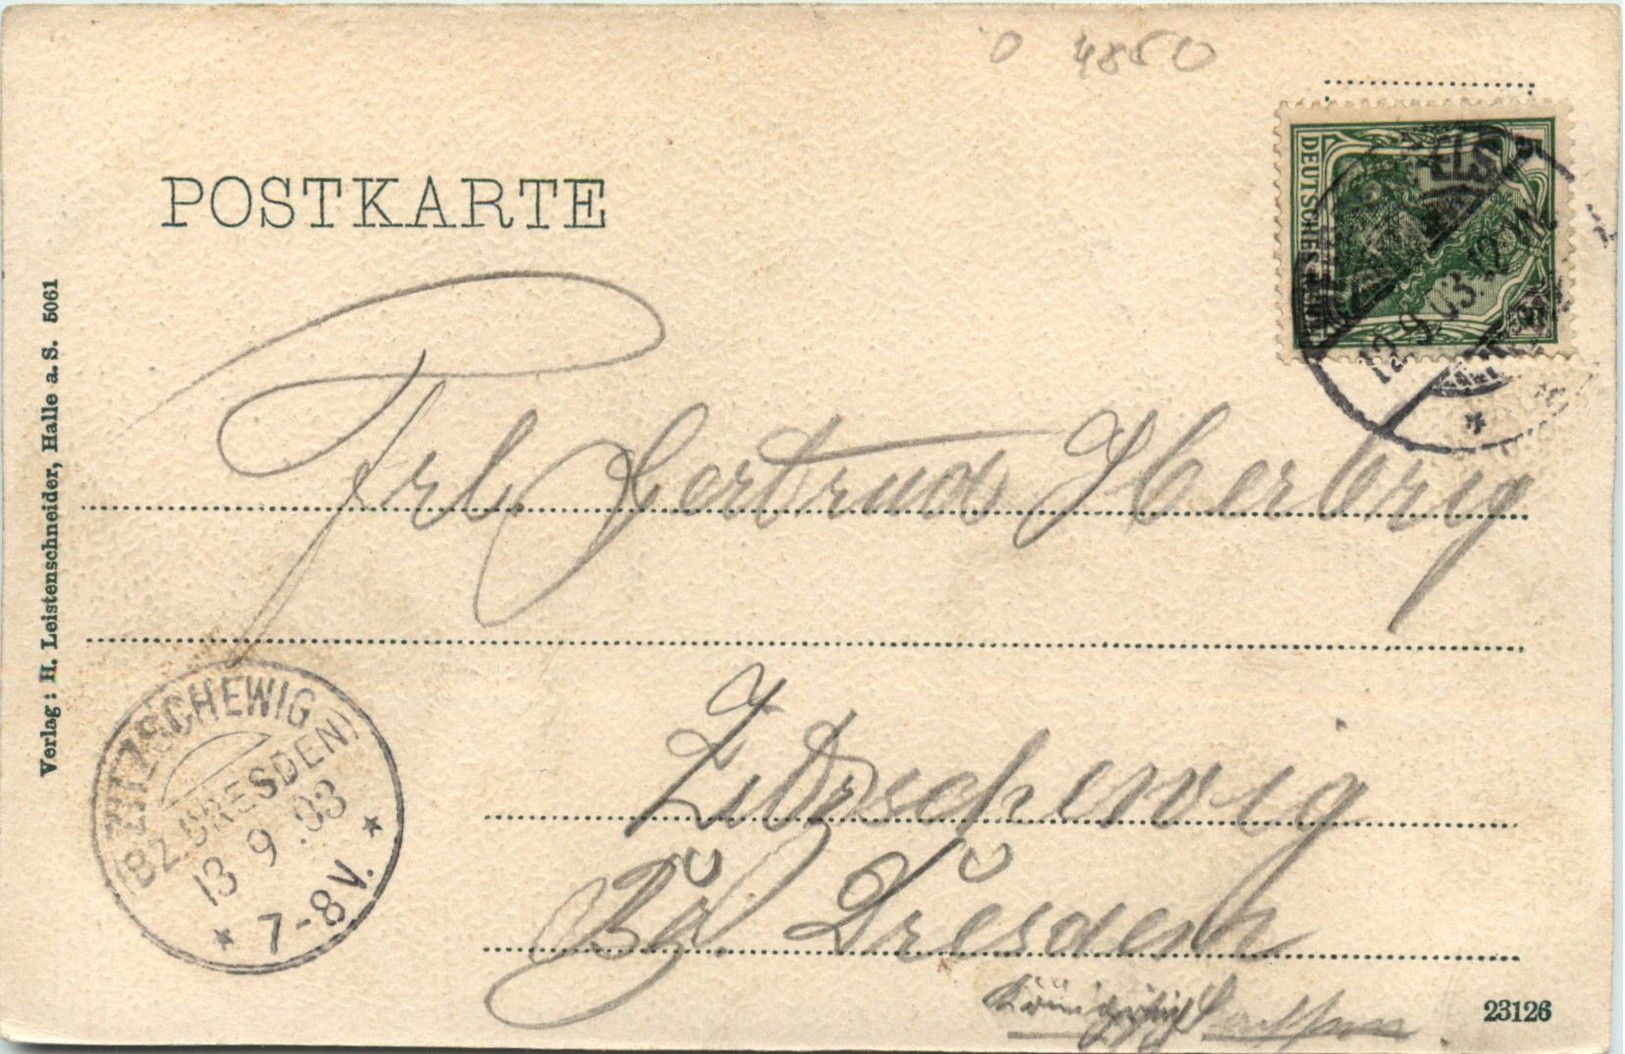 0 4850
POSTKARTE
DEUTSCHES REICH
12.9.03.12
Verlag: H. Leistenschneider, Halle a. S. 5061
Frl. Gertrud Herbrig
Zitzschewig
Bz. Dresden
ZITZSCHEWIG
(BZ. DRESDEN)
13 9 03
7-8V.
23126